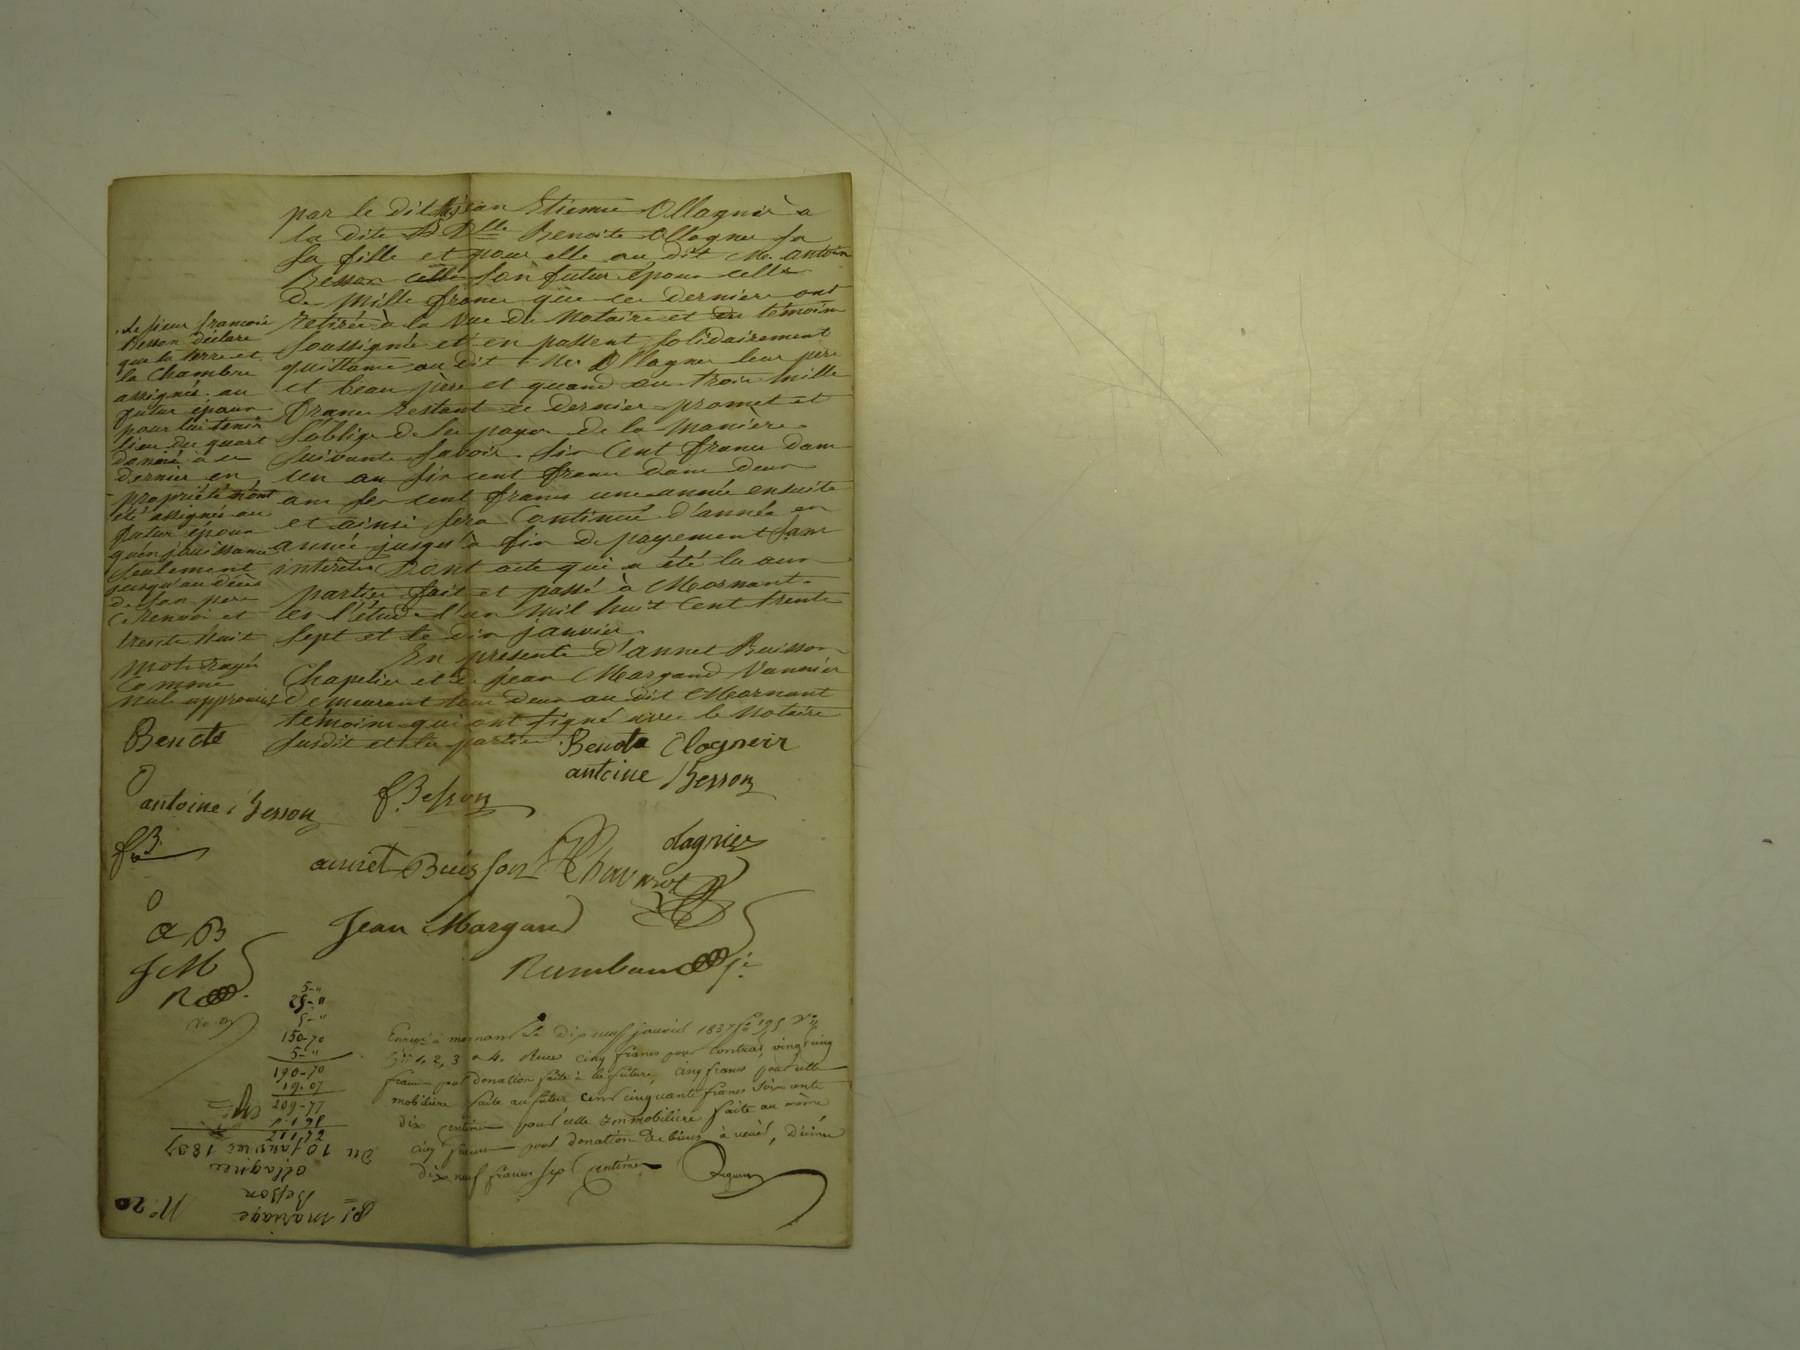 par le dit Jean Etienne Ollagnier à
la dite Dlle Benoite Ollagner sa
sa fille et pour elle au dit Me. antoin
Besson celle son futur époux celle
de mille francs que ce derniers ont
retirée à la vue du Notaire et des témoins
soussignés et en passent solidairement
quittance au dit Me Ollagner leur père
et beau père et quand au trois mille
francs restant ce dernier promet et
s'oblige de les payer de la manière
suivante savoir. six cent francs dans
un an six cent francs dans deux
ans six cent francs une année ensuite
et ainsi sera Continué d'année en
année jusqu'à fin de payement sans
intérêts Dont acte qui a été lu aux
parties fait et passé à Mornant
en l'étude l'an mil huit Cent trente
sept et le dix janvier.
En présence d'annet Buisson
Chapelier et de jean Margand Vannier
demeurant tous deux au dit Mornant
témoins qui ont signé avec le Notaire
susdit et les parties
. Le sieur francois
Besson déclare
que la terre et
la Chambre
assignés au
futur époux
pour lui tenir
lieu du quart
donné à ce
dernier en
propriété n'ont
été assignés au
futur époux
qu'en jouissance
seulement
jusqu'au décès
de son père
Ce Renvoi et
trente huit
mots rayés
comme
nuls approuvés
Benoite
O
antoine Besson
f. B
O
a B
J M
R
Benoite Olagneir
antoine Besson
f. Besson
olagnier
annet Buisson
Jean Margand
5-"
25-0
5-"
150-70
5-"
190-70
19-07
209-77
Enregé à mornant le dix neuf janvier 1837 fo 195 Vo
Cses 1, 2, 3 et 4. Reçu cinq francs pour contrat, vingt cinq
francs pour donation faite à la future, cinq francs pour celle
mobilière faite au futur Cent cinquante francs soixante
dix centimes pour celle Immobilière faite au même
cinq francs pour donation de biens à venir, Décime
dix neuf francs sept centimes
No 20
Pt mariage
Besson
Ollagnier
Du 10 janvier 1837